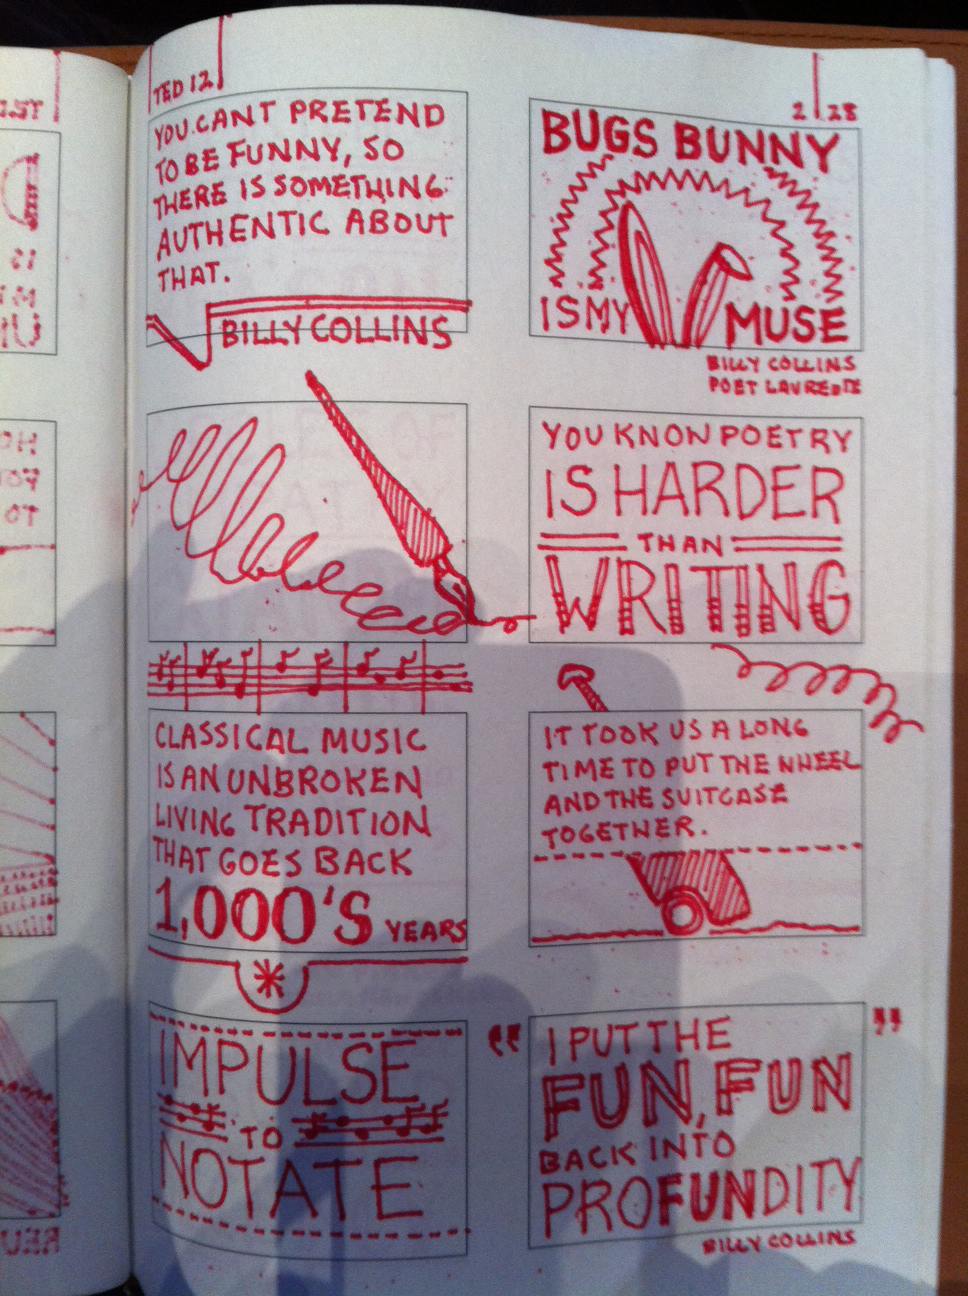 TED 12
2 28
YOU CANT PRETEND
TO BE FUNNY, SO
THERE IS SOMETHING
AUTHENTIC ABOUT
THAT.
BILLY COLLINS
BUGS BUNNY
IS MY MUSE
BILLY COLLINS
POET LAUREATE
YOU KNOW POETRY
IS HARDER
THAN
WRITING
CLASSICAL MUSIC
IS AN UNBROKEN
LIVING TRADITION
THAT GOES BACK
1,000'S YEARS
IT TOOK US A LONG
TIME TO PUT THE WHEEL
AND THE SUITCASE
TOGETHER.
IMPULSE
TO
NOTATE
"I PUT THE
FUN, FUN
BACK INTO
PROFUNDITY"
BILLY COLLINS